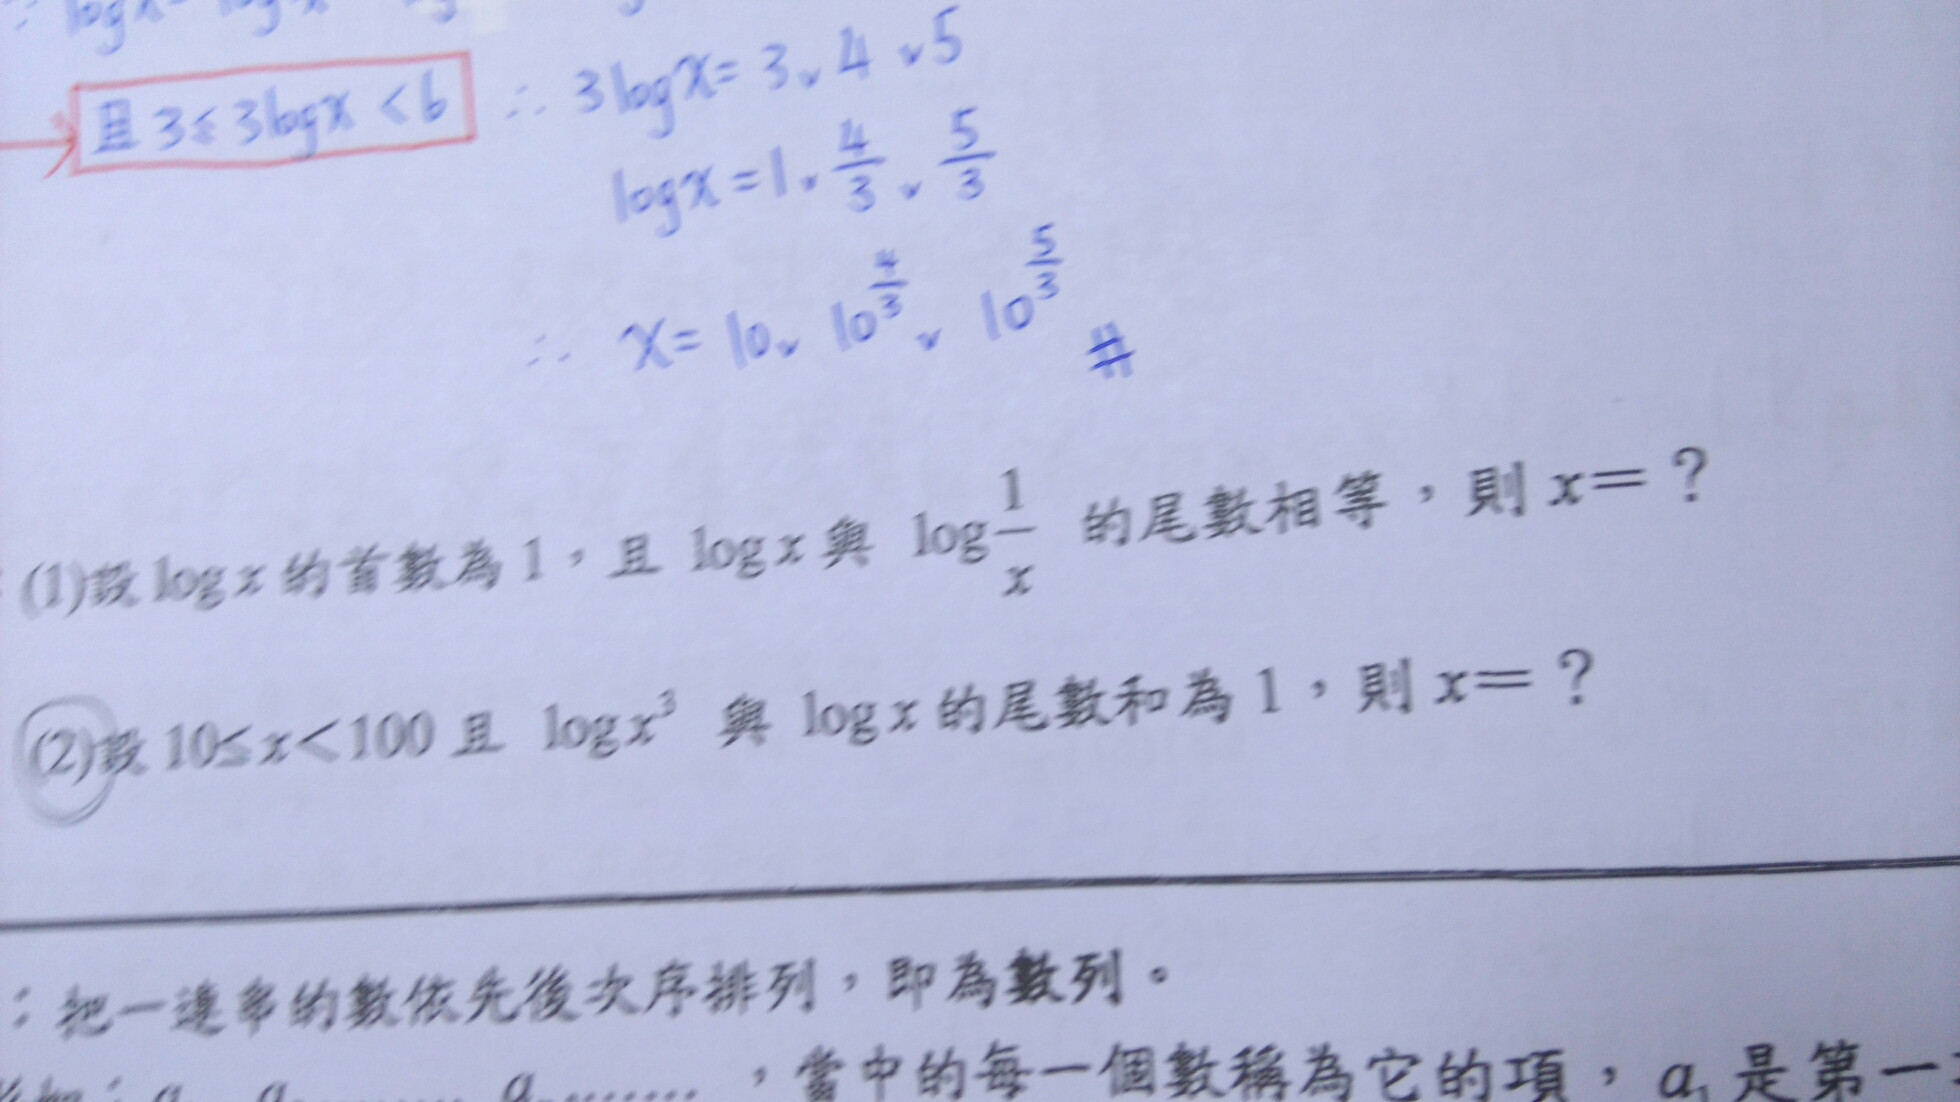 且 3≤3logx<6 ∴ 3logx=3、4、5
logx=1、4/3、5/3
∴ x=10、10^(4/3)、10^(5/3) #
(1)設 log x 的首數為 1，且 log x 與 log 1/x 的尾數相等，則 x=？
(2)設 10≤x<100 且 log x³ 與 log x 的尾數和為 1，則 x=？
：把一連串的數依先後次序排列，即為數列。
，當中的每一個數稱為它的項，a₁ 是第一